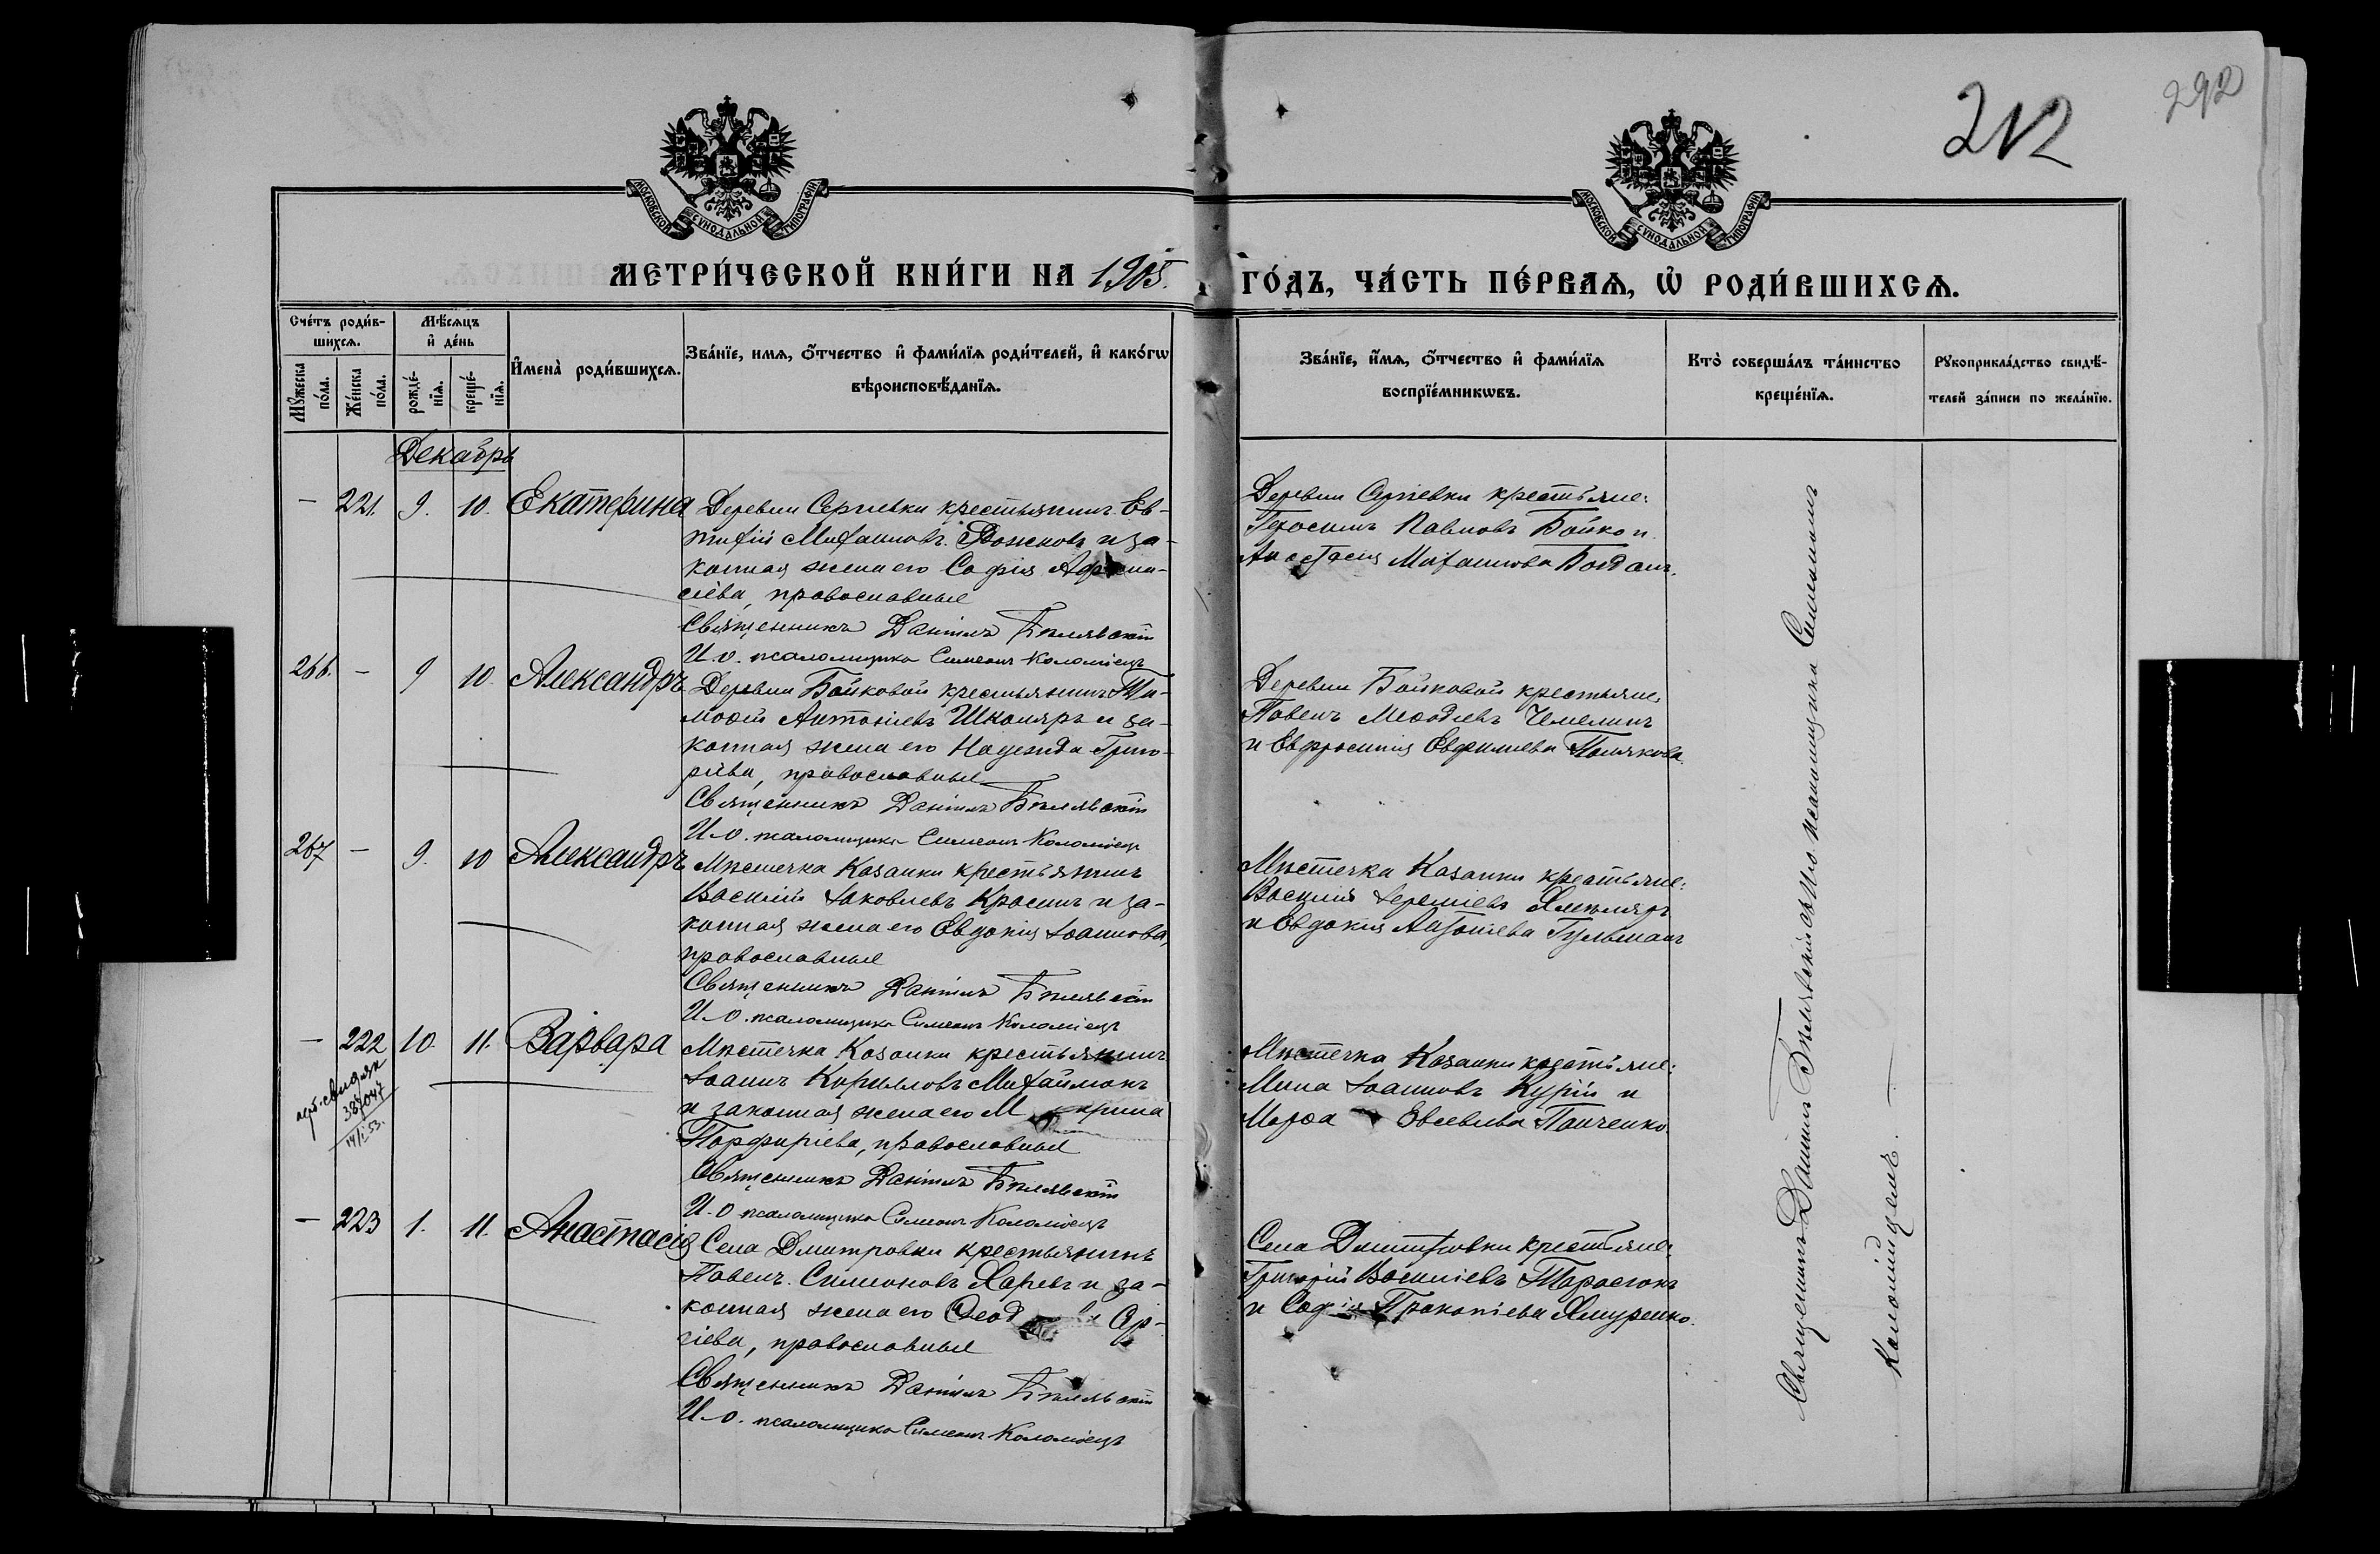 292
212
МОСКОВСКОЙ СУНОДАЛЬНОЙ ТИПОГРАФІИ
МОСКОВСКОЙ СУНОДАЛЬНОЙ ТИПОГРАФІИ
МЕТРИ́ЧЕСКОЙ КНИ́ГИ НА 1905.
ГО́ДЪ, ЧА́СТЬ ПЕ́РВАѦ, Ѡ҆ РОДИ́ВШИХСѦ.
Сче́тъ роди́в-
шихсѧ.
Мѣ́сѧцъ
и҆ де́нь
Мꙋ́жеска по́ла.
Же́нска по́ла.
рожде́-
нїѧ.
креще́-
нїѧ.
И҆мена̀ роди́вшихсѧ.
Зва́нїе, имѧ, ѻ҆́тчество и҆ фами́лїѧ роди́телей, и҆ како́гѡ
вѣроисповѣ́данїѧ.
Зва́нїе, и҆́мѧ, ѻ҆́тчество и҆ фами́лїѧ
воспрїе́мникѡвъ.
Кто̀ соверша́лъ та́инство
креще́нїѧ.
Рꙋкоприкла́дство свидѣ́-
телей за́писи по жела́нїю.
Декабрь
— 221. 9. 10. Екатерина
Деревни Сергіевки крестьянинъ Ев-
тихій Михаиловъ Божковъ и за-
конная жена его Софія Афана-
сіева, православные
Священникъ Даніилъ Бѣлявскій
И. о. псаломщика Симеонъ Коломіецъ
Деревни Сергіевки крестьяне:
Герасимъ Павловъ Бойко и
Анастасія Михаилова Богдан.
266. — 9 10. Александръ
Деревни Бойковой крестьянинъ Ти-
мофей Антоніевъ Школяръ и за-
конная жена его Надежда Григо-
ріева, православные
Священникъ Даніилъ Бѣлявскій
И. о. псаломщика Симеонъ Коломіецъ
Деревни Бойковой крестьяне:
Павелъ Меѳодіевъ Чемелинъ
и Евфросинія Евфиміева Полякова
267 — 9. 10 Александръ
Мѣстечка Казанки крестьянинъ
Василій Іаковлевъ Красинъ и за-
конная жена его Евдокія Іоаннова,
православные
Священникъ Даніилъ Бѣлявскій
И. о. псаломщика Симеонъ Коломіецъ
Мѣстечка Казанки крестьяне:
Василій Іереміевъ
и Евдокія Антоніева Гульманъ
— 222 10. 11. Варвара
387047
14/I 53.
Мѣстечка Казанки крестьянинъ
Іоаннъ Кирилловъ Михайлюкъ
и законная жена его М рина
Порфиріева, православные
Священникъ Даніилъ Бѣлявскій
И. о псаломщика Симеонъ Коломіецъ
Мѣстечка Казанки крестьяне:
Мина Іоанновъ Курій и
Марѳа Евсевіева Панченко.
— 223 1. 11. Анастасія
Села Дмитровки крестьянинъ
Павелъ Симеоновъ Харевъ и за-
конная жена его Ѳеод Сер-
гіева, православные
Священникъ Даніилъ Бѣлявскій
И. о. псаломщика Симеонъ Коломіецъ
Села Димитровки крестьяне:
Григорій Василіевъ Тарасюкъ
и Софія Прокопіева
Священникъ Даніилъ Бѣлявскій съ И. о. псаломщика Симеономъ
Коломійцемъ.